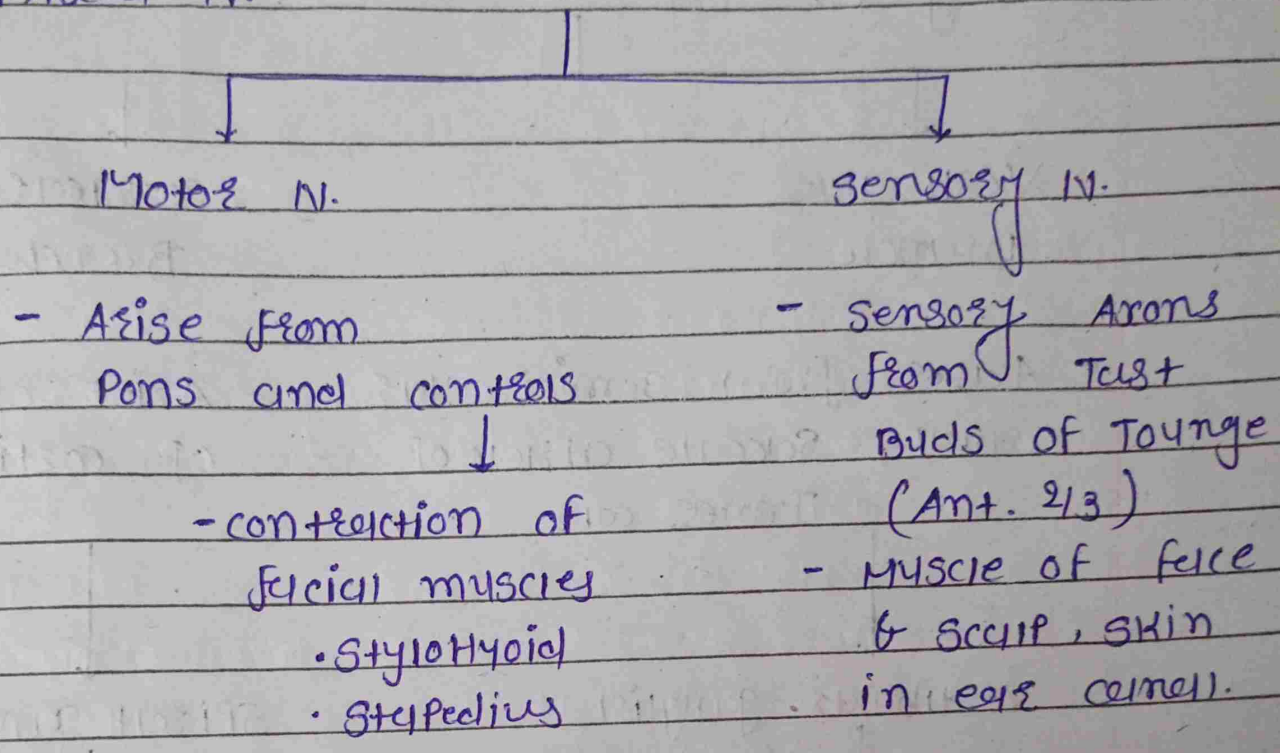 Motor N.
Sensory N.
- Arise from
Pons and controls
- contraction of
facial muscles
• StyloHyoid
• Stapedius
- Sensory Axons
from Tast
Buds of Tounge
(Ant. 2/3)
- Muscle of face
& Scalp, Skin
in ear canal.